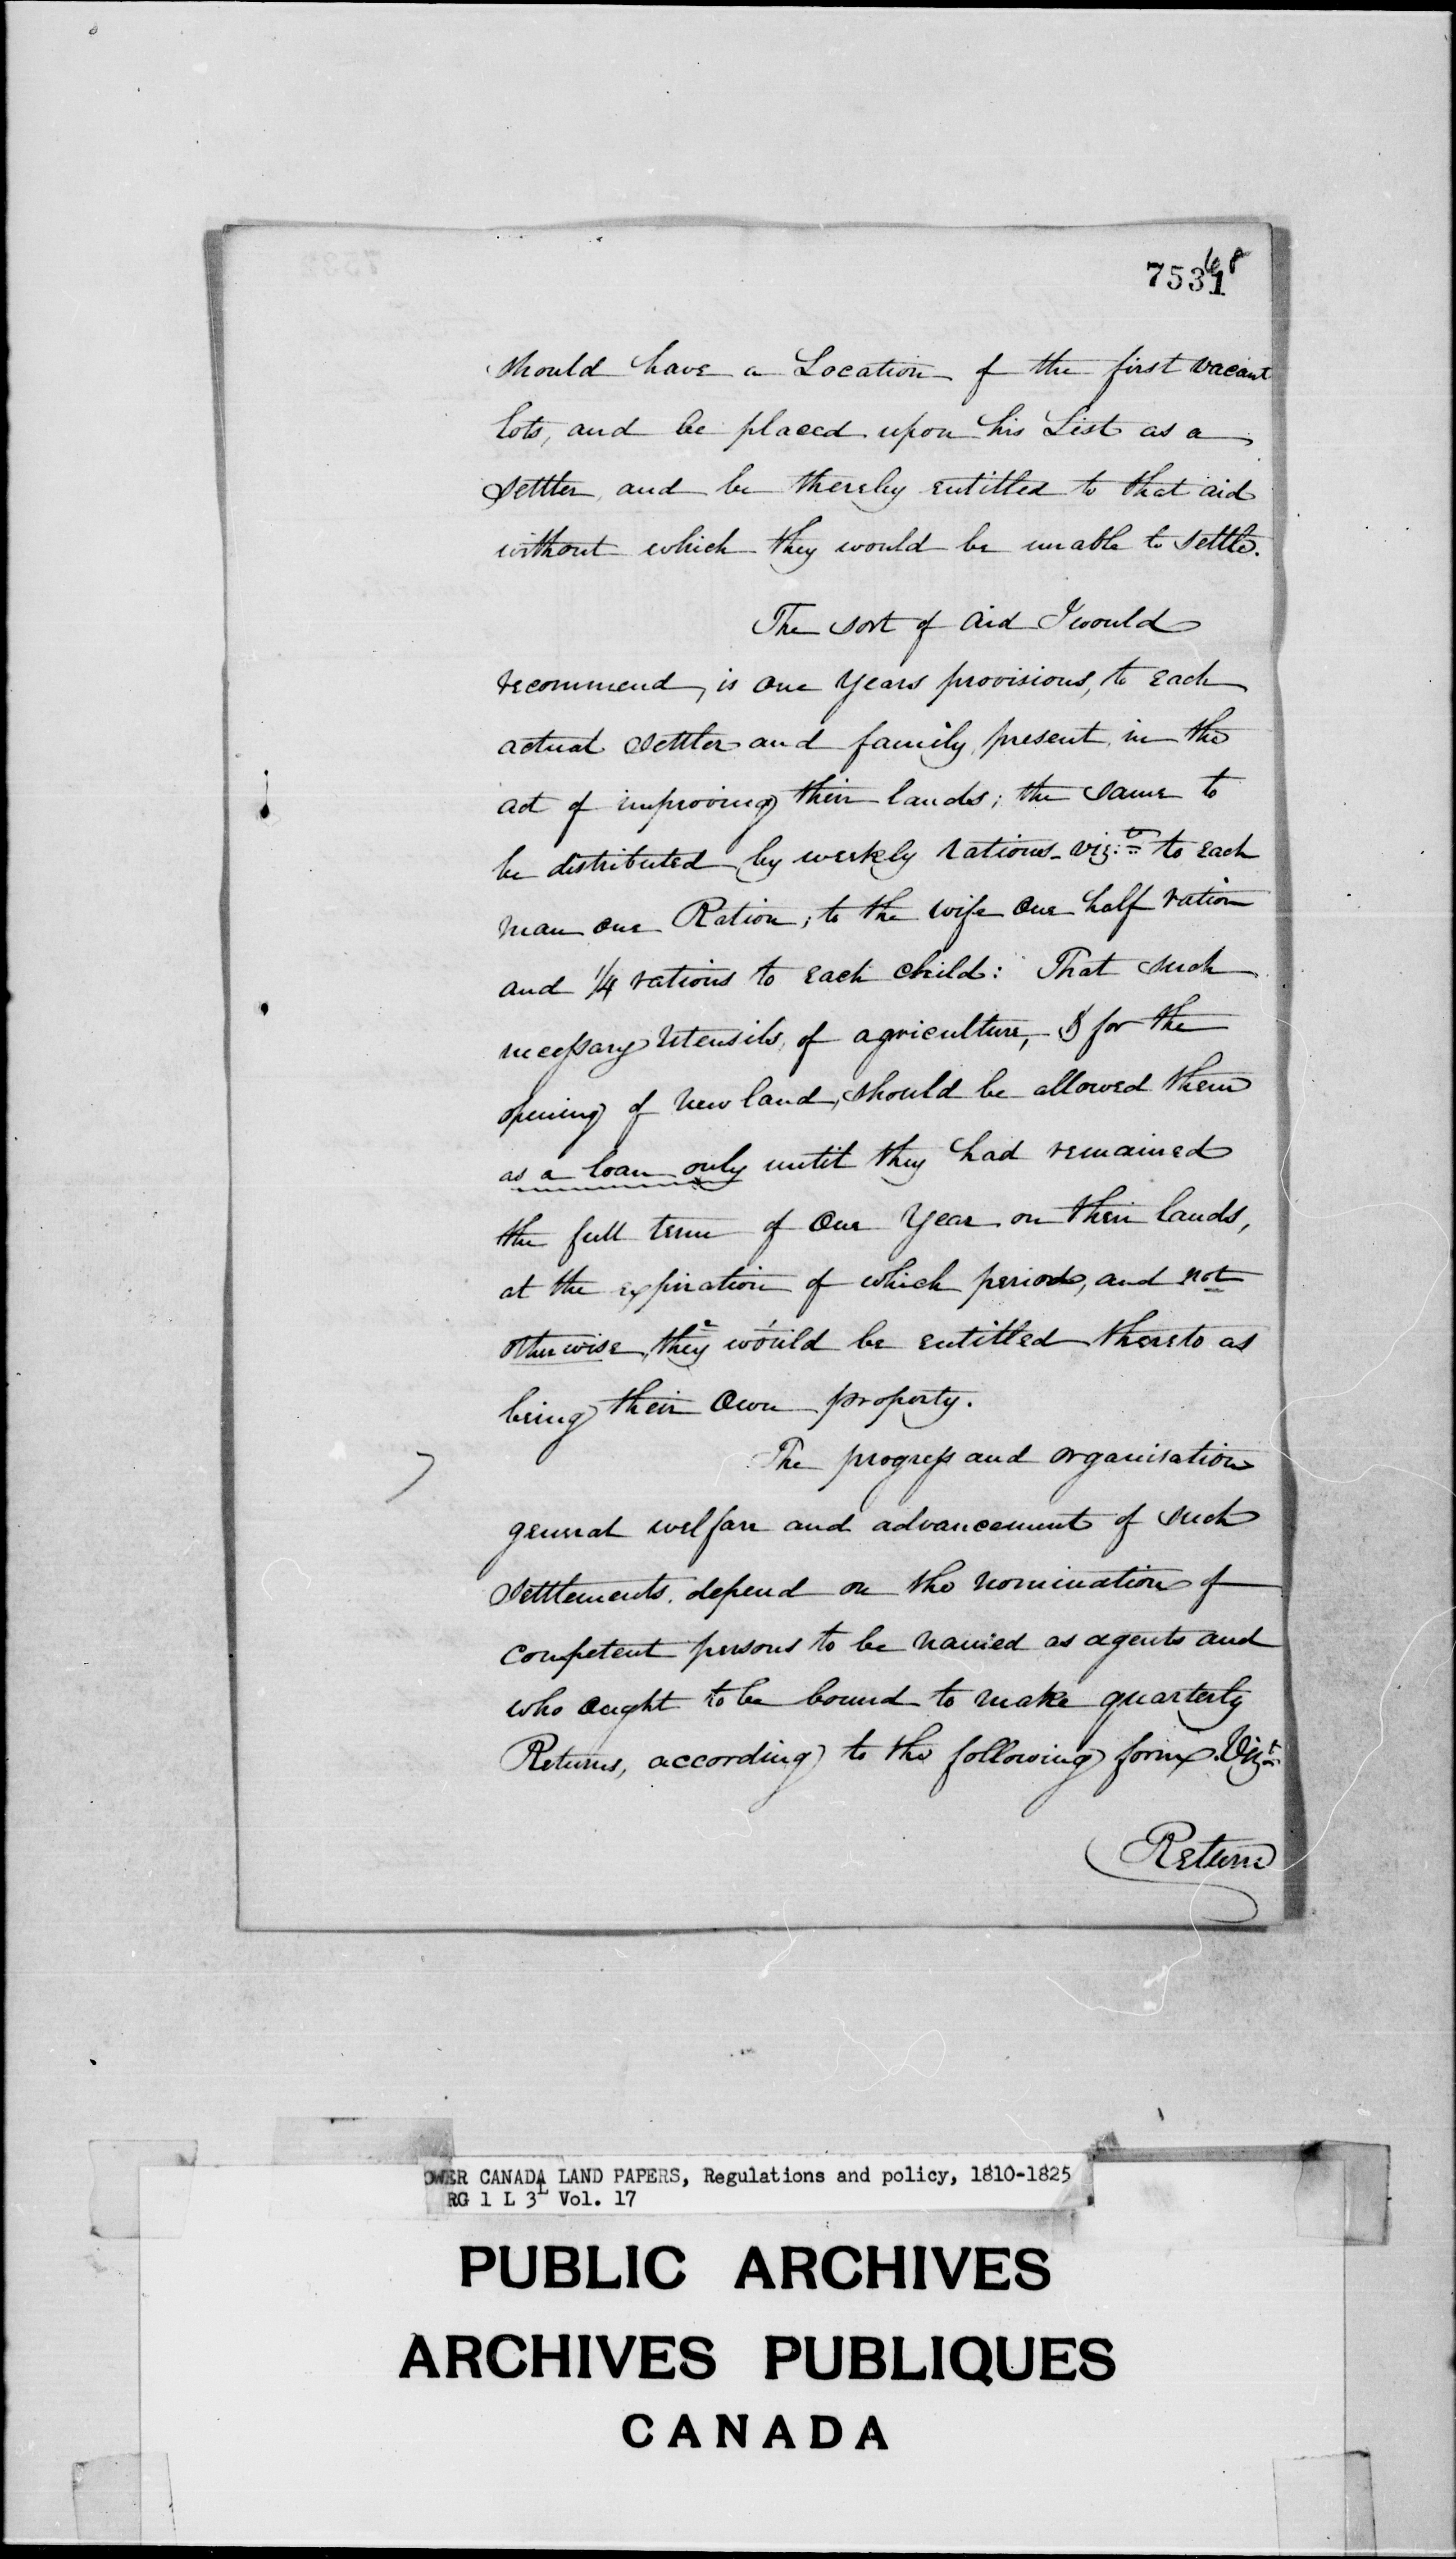 7531
48
should have a Location of the first vacant
lots, and be placed upon his List as a
Settler, and be thereby entitled to that aid
without which they would be unable to settle.
The sort of aid I would
recommend, is one Years provisions, to each
actual Settler and family, present, in the
act of improving their lands; the same to
be distributed by weekly rations – viz.t to each
man one Ration; to the wife one half ration
and 1/4 rations to each child: That such
necessary Utensils, of agriculture, & for the
opening of new land, should be allowed them
as a loan only until they had remained
the full term of One Year on their lands,
at the expiration of which period, and not
otherwise, they 2 would 1 be entitled thereto as
being their Own property.
The progress and organisation
general welfare and advancement of such
Settlements, depend on the nomination of
competent persons to be named as agents and
who ought to be bound to make quarterly
Returns, according to the following form. Vizt
Return
OWER CANADA LAND PAPERS, Regulations and policy, 1810-1825
RG 1 L 3L Vol. 17
PUBLIC ARCHIVES
ARCHIVES PUBLIQUES
CANADA